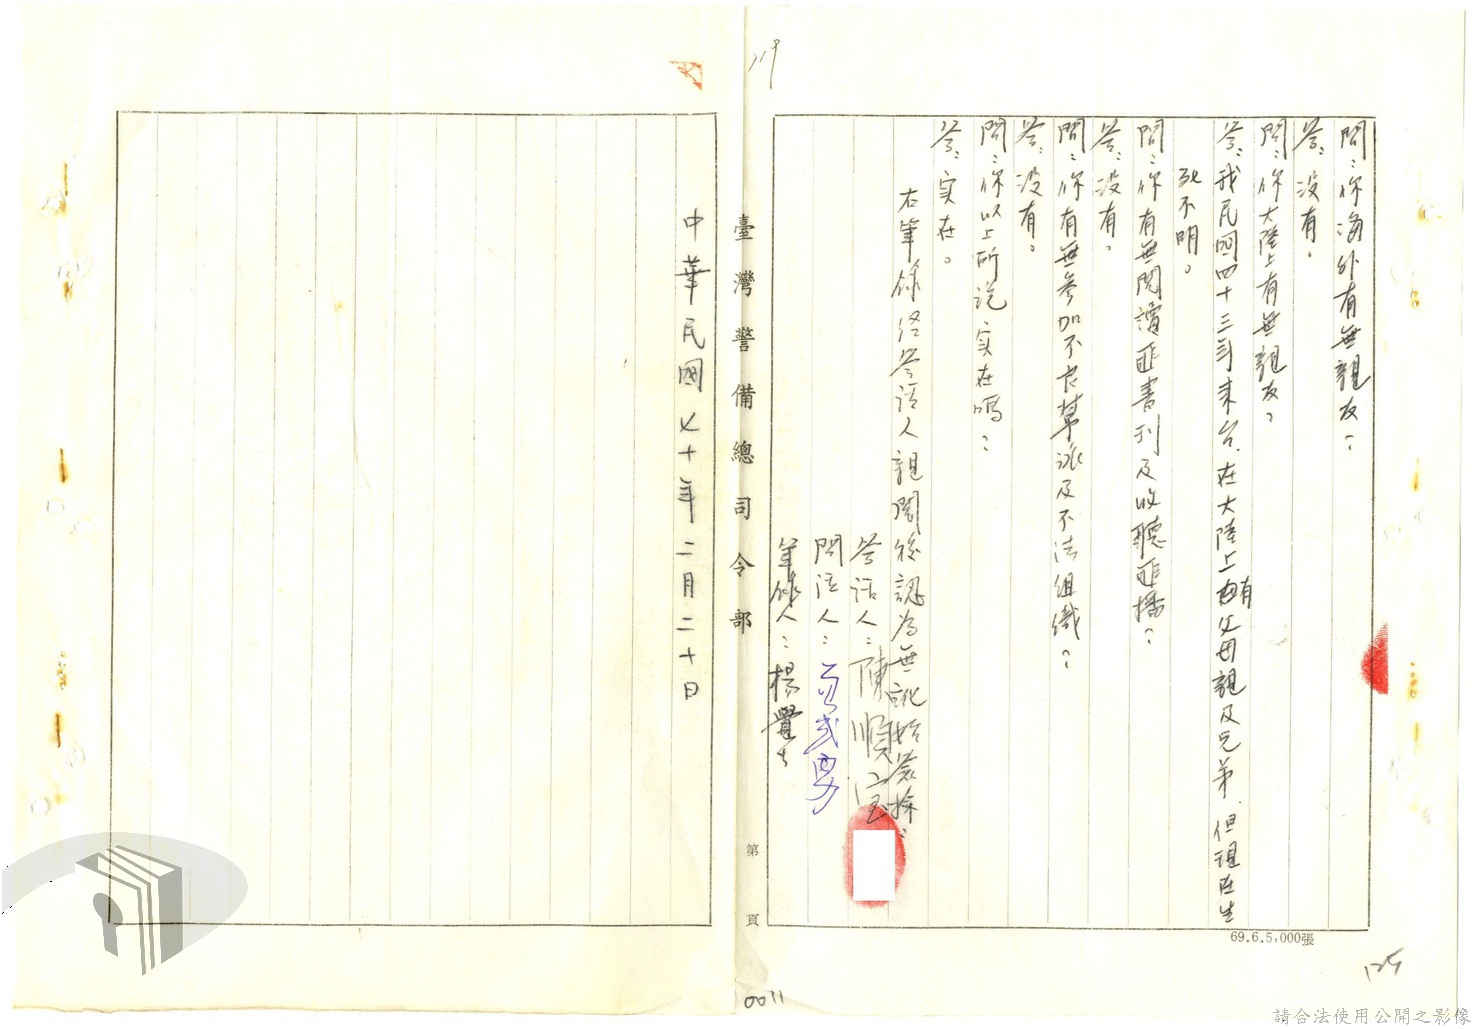 問：你海外有無親友？
答：没有。
問：你大陸上有無親友？
答：我民國四十三年来台，在大陸上有父母親及兄弟，但現在生
死不明。
問：你有無閱讀匪書刊及收聽匪播？
答：没有。
問：你有無參加不良幫派及不法組織？
答：没有。
問：你以上所说实在嗎？
答：实在。
右筆錄经答話人親閱後認為無訛始簽捺：
答話人：陳順
問話人：
筆錄人：楊覺
臺灣警備總司令部
第 頁
中華民國七十年二月二十日
69.6.5,000張
125
0011
請合法使用公開之影像